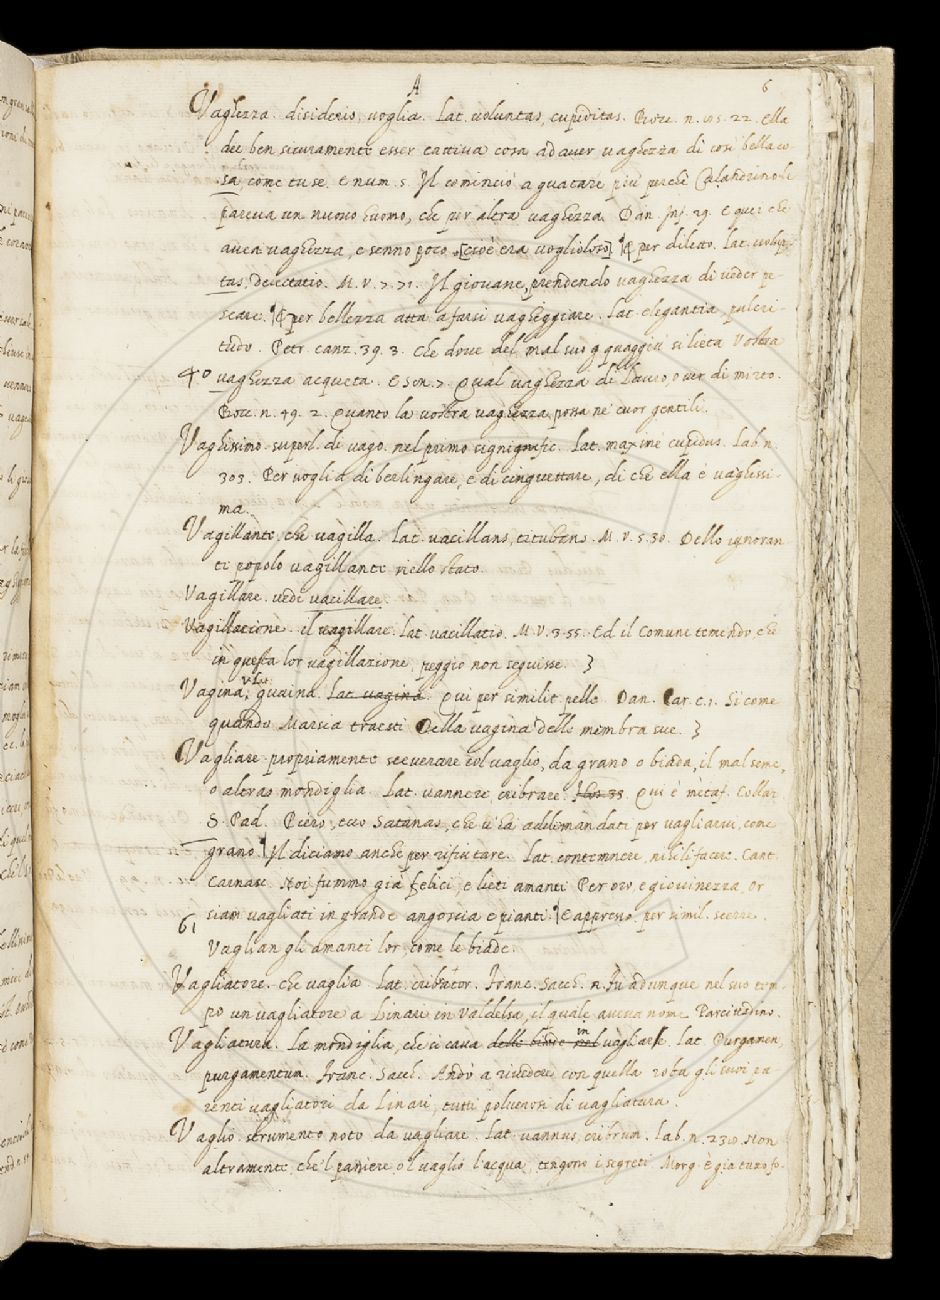 A 6
Vaghezza. disiderio, voglia. Lat. voluntas, cupiditas. Bocc. n. 22. Ella
dee ben sicuramente esser cattiva cosa ad aver vaghezza di così bella co
sa, come tu se. E num. 5. Il cominciò a guatare più perchè Calandrino le
pareva un nuovo huomo, che per altra vaghezza. Dan. Inf. 29. E quei che
avea vaghezza, e senno poco. [cioè era voglioloso] ¶ per diletto. Lat. volup-
tas, delectatio. M. V. 7. 71. Il giovane, prendendo vaghezza di veder pe-
scare. ¶ per bellezza atta a farsi vagheggiare. Lat. elegantia, pulcri-
tudo. Petr. canz. 39. 3. Che dove del mal suo q quaggiu si lieta Vostra
40 vaghezza acqueta. E son. 7. Qual vaghezza di Lauro, o ver di mirto.
Bocc. n. 49. 2. Quanto la vostra vaghezza possa ne cuor gentili.
Vaghissimo. superl. di vago. nel primo signignific. Lat. maxime cupidus. Lab. n.
303. Per voglia di berlingare, e di cinguettare, di che ella è vaghissi-
ma.
Vagillante, che vagilla. Lat. vacillans, titubans. M. V. 5. 30. Dello ignoran
ti popolo vagillante nello stato.
Vagillare. vedi vacillare.
Vagillazione. il vagillare. Lat. vacillatio. M. V. 3. 55. Ed il Comune temendo, che
in questa lor vagillazione, peggio non seguisse. }
Vagina, guaina. Lat. vagina. Qui per similit. pelle. Dan. Par. c. 1. Si come
quando Marsia traesti Della vagina delle membra sue. }
Vagliare. propriamente sceverare col vaglio, da grano o biada, il mal seme,
o altra mondiglia. Lat. vannere, cribrare. Qui è metaf. Collaz.
S. Pad. Piero, ecco Satanas, che v'ha addomandati per vagliarvi, come
grano. ¶ Il diciamo anche per rifiutare. Lat. contemnere, nihili facere. Cant.
Carnasc. Noi fummo già felici, e lieti amanti Per oro, e giovinezza, Or
siam vagliati in grande angoscia e pianti. ¶ E appresso. per simil. scerre.
61 Vaglian gli amanti lor, come le biade.
Vagliatore. che vaglia. Lat. cribrator. Franc. Sacch. n. Fù adunque nel suo tem-
po un vagliatore a Linari in Valdelsa, il quale aveva nome Parcittadino.
Vagliatura. La mondiglia, che si cava delle biade nel in vagliare. Lat. Purgamen,
purgamentum. Franc. Sacch. Andò a rivedere con quella roba gli suoi pa-
renti vagliatori da Linari, tutti polverosi di vagliatura.
Vaglio strumento noto da vagliare. Lat. vannus, cribrum. Lab. n. 230. Non
altramente, che'l paniere, o'l vaglio l'acqua, tengono i segreti Morg. è già tutto fo-